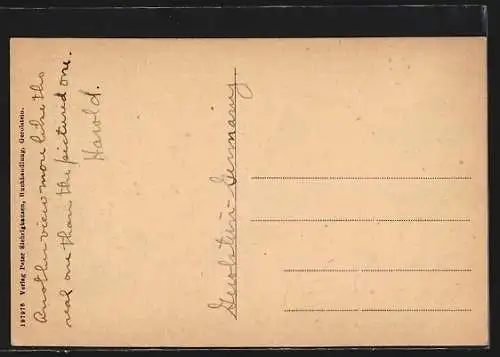 Another view more like the
real one than the pictured one.
Harold.
Gerolstein - Germany
197976 Verlag Peter Slehrighausen, Buchhandlung, Gerolstein.